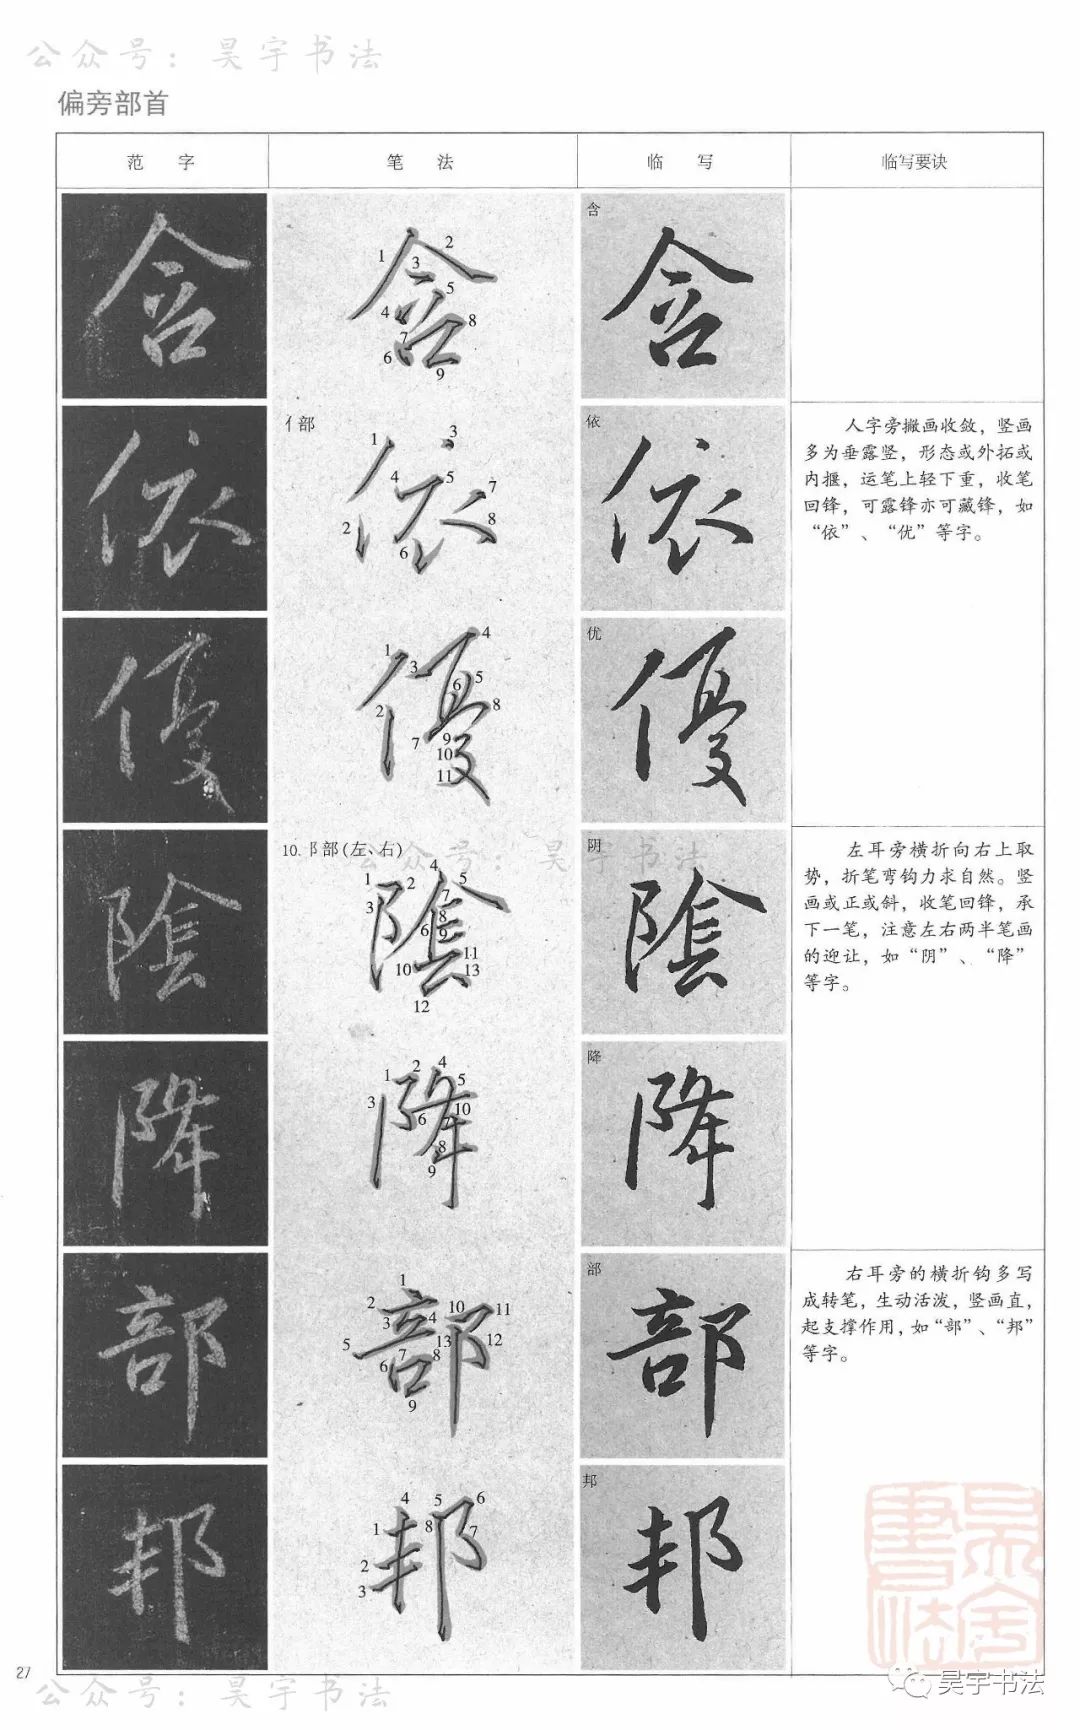 公众号：昊宇书法
偏旁部首
范 字 笔 法 临 写 临写要诀
含
1 2 3 4 5 6 7 8 9
亻部
依
1 2 3 4 5 6 7 8
人字旁撇画收敛，竖画
多为垂露竖，形态或外拓或
内擫，运笔上轻下重，收笔
回锋，可露锋亦可藏锋，如
“依”、“优”等字。
优
1 2 3 4 5 6 7 8 9 10 11
10. 阝部(左、右)
公众号：昊宇书法
阴
1 2 3 4 5 6 7 8 9 10 11 12 13
左耳旁横折向右上取
势，折笔弯钩力求自然。竖
画或正或斜，收笔回锋，承
下一笔，注意左右两半笔画
的迎让，如“阴”、“降”
等字。
降
1 2 3 4 5 6 7 8 9 10
部
1 2 3 4 5 6 7 8 9 10 11 12 13
右耳旁的横折钩多写
成转笔，生动活泼，竖画直，
起支撑作用，如“部”、“邦”
等字。
邦
1 2 3 4 5 6 7 8
27
公众号：昊宇书法
昊宇书法